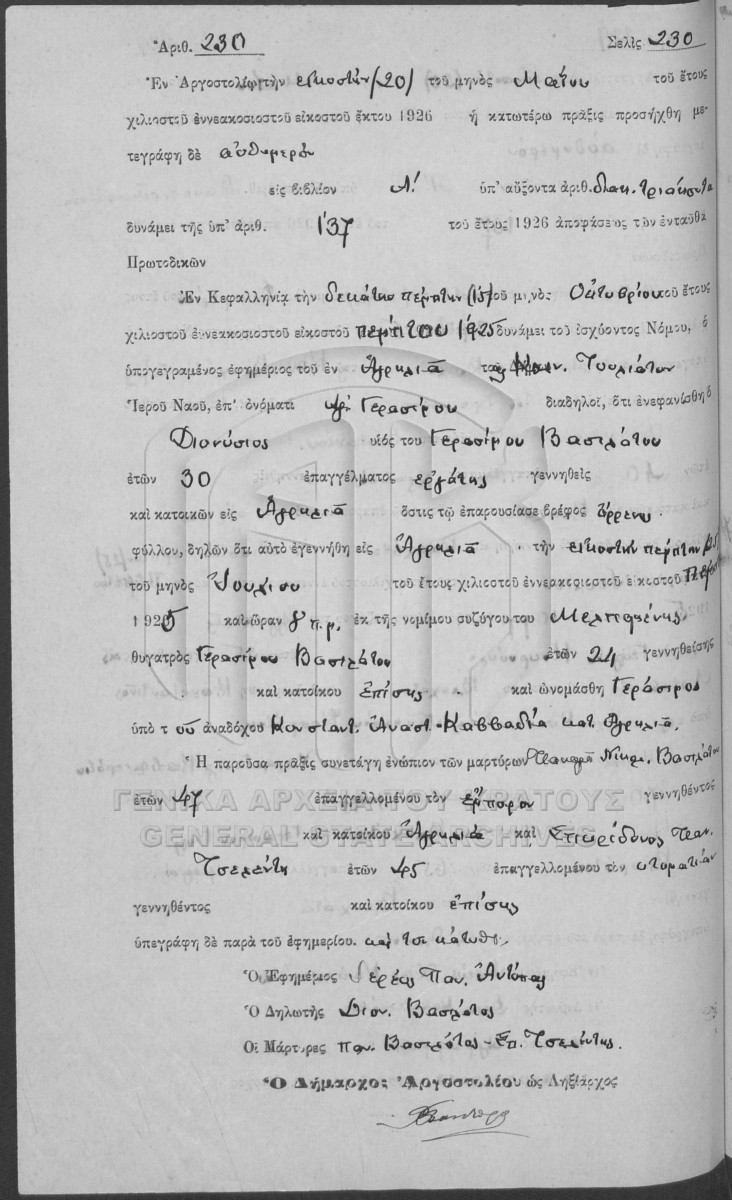 Ἀριθ. 230 Σελὶς 230
Ἐν Ἀργοστολίῳ τὴν εἰκοστὴν (20) τοῦ μηνὸς Μαΐου τοῦ ἔτους
χιλιοστοῦ ἐννεακοσιοστοῦ εἰκοστοῦ ἕκτου 1926 ἡ κατωτέρω πρᾶξις προσήχθη με-
τεγράφη δὲ αὐθημερὸν
εἰς βιβλίον Α! ὑπ' αὔξοντα ἀριθ. διακ. τριάκοντα
δυνάμει τῆς ὑπ' ἀριθ. 137 τοῦ ἔτους 1926 ἀποφάσεως τῶν ἐνταῦθα
Πρωτοδικῶν
Ἐν Κεφαλληνίᾳ τὴν δεκάτην πέμπτην (15) τοῦ μηνὸς Ὀκτωβρίου τοῦ ἔτους
χιλιοστοῦ ἐννεακοσιοστοῦ εἰκοστοῦ πέμπτου 1925 δυνάμει τοῦ ἰσχύοντος Νόμου, ὁ
ὑπογεγραμένος ἐφημέριος τοῦ ἐν Ἀγκλιᾶ Τουλιάτων
Ἱεροῦ Ναοῦ, ἐπ' ὀνόματι Ἁγ. Γερασίμου διαδηλοῖ, ὅτι ἐνεφανίσθη ὁ
Διονύσιος υἱὸς του Γερασίμου Βασιλάτου
ἐτῶν 30 ἐπαγγέλματος ἐργάτης γεννηθεὶς
καὶ κατοικῶν εἰς ὅστις τῷ ἐπαρουσίασε βρέφος ἄρρενος
φύλλου, δηλῶν ὅτι αὐτὸ ἐγεννήθη εἰς τὴν εἰκοστὴν πέμπτην 25
τοῦ μηνὸς Ἰουλίου τοῦ ἔτους χιλιοστοῦ ἐννεακοσιοστοῦ εἰκοστοῦ πέμπτου
1925 καὶ ὥραν π.μ. ἐκ τῆς νομίμου συζύγου του Μελπομένης
θυγατρὸς Γερασίμου Βασιλάτου ἐτῶν 24 γεννηθείσης
καὶ κατοίκου ἐπίσης καὶ ὠνομάσθη Γεράσιμος
ὑπὸ τοῦ ἀναδόχου Κωνσταντ. Ἀναστ. Καββαδία κατ.
Ἡ παροῦσα πρᾶξις συνετάγη ἐνώπιον τῶν μαρτύρων Νικολ. Βασιλάτου
ἐτῶν 47 ἐπαγγελλομένου τὸν ἔμπορον γεννηθέντος
καὶ κατοίκου καὶ Σπυρίδωνος
Τσελέντη ἐτῶν 45 ἐπαγγελλομένου τὸν
γεννηθέντος καὶ κατοίκου ἐπίσης
ὑπεγράφη δὲ παρὰ τοῦ ἐφημερίου. καὶ
Ὁ Ἐφημέριος Ἱερεὺς Παν. Ἀντύπας
Ὁ Δηλωτὴς Διον. Βασιλάτος
Οἱ Μάρτυρες Παν. Βασιλάτος - Σπ. Τσελέντης.
Ὁ Δήμαρχος Ἀργοστολίου ὡς Ληξίαρχος
ΓΕΝΙΚΑ ΑΡΧΕΙΑ ΤΟΥ ΚΡΑΤΟΥΣ
GENERAL STATE ARCHIVES